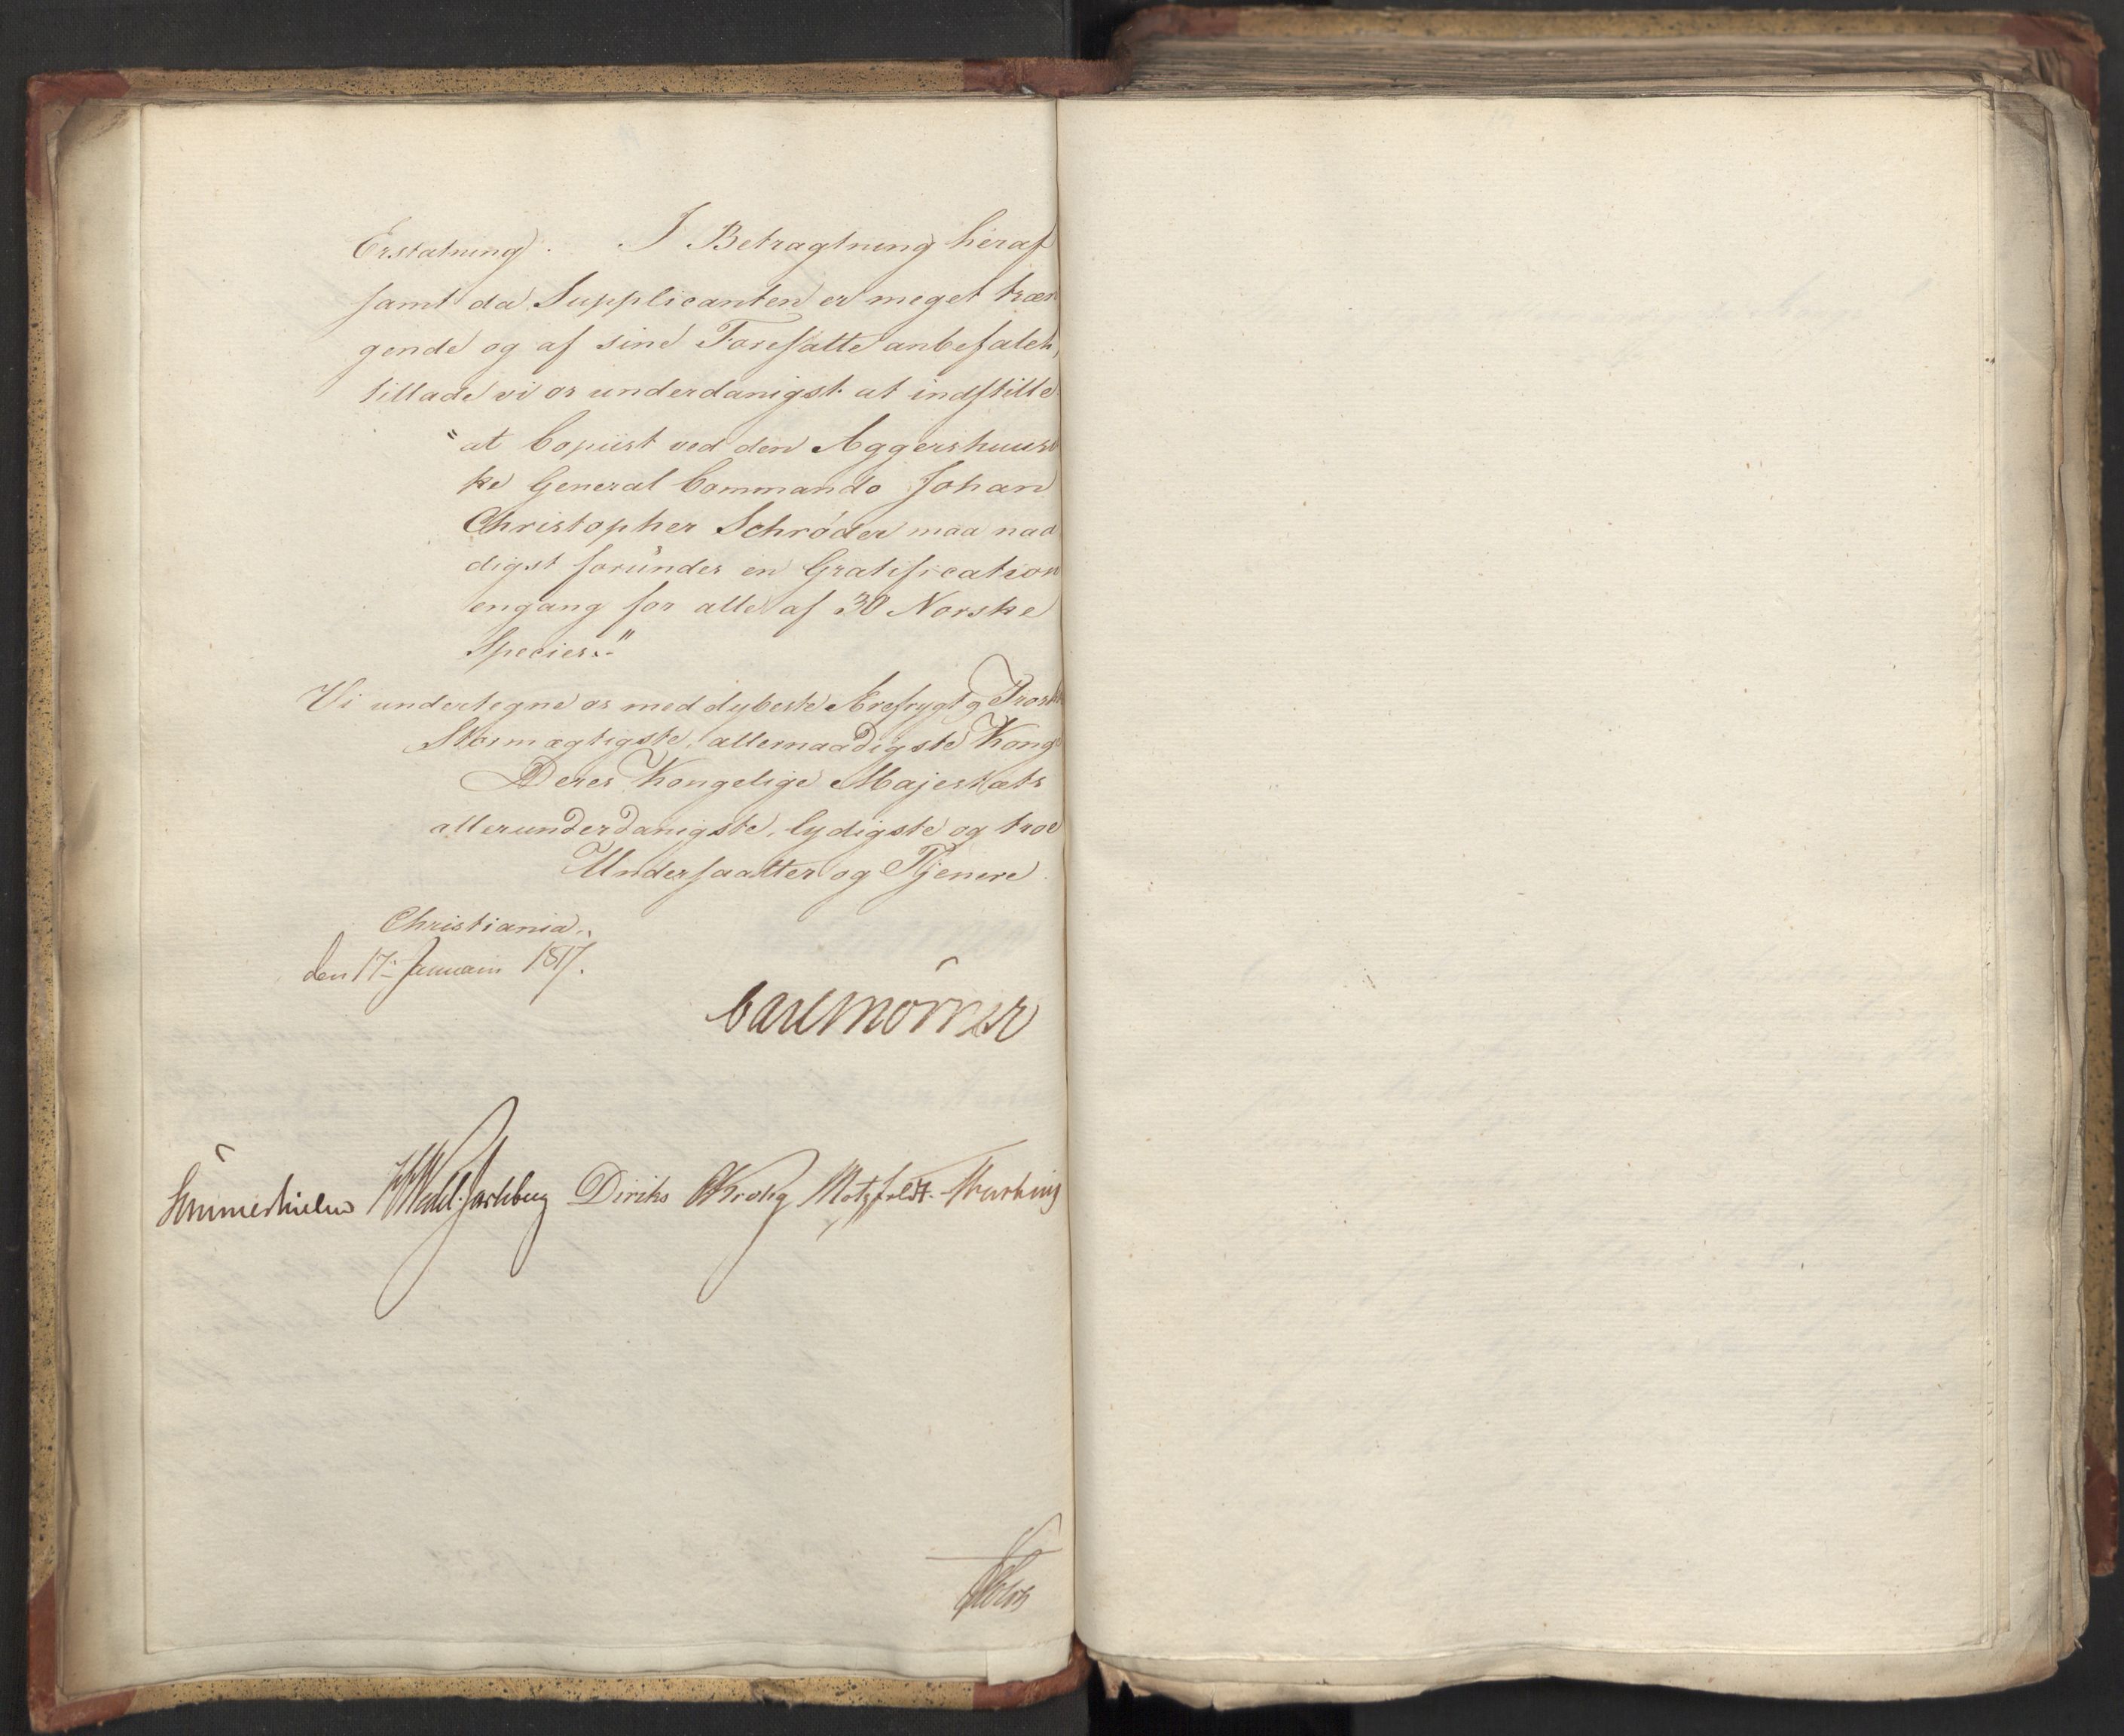 Erstatning). I Betragtning heraf
samt da Supplicanten er meget træn
gende og af sine Foresatte anbefalet,
tillade vi os underdanigst at indstille
"at Copiist ved den Aggershuus
ke General Commando Johan
Christopher Schrøder maa naa
digst forundes en Gratification
engang for alle af 30 Norske
Species."
Vi undertegne os med dybeste Ærefrygt og
Stormægtigste, allernaadigste Konge
Deres Kongelige Majestæts
allerunderdanigste, lydigste og troe
Undersaatter og Tjenere.
Christiania,
den 17: Januarii 1817.
Carl Mörner
Sommerhielm Wedel Jarlsberg Diriks Krohg Motzfeldt.
Holst